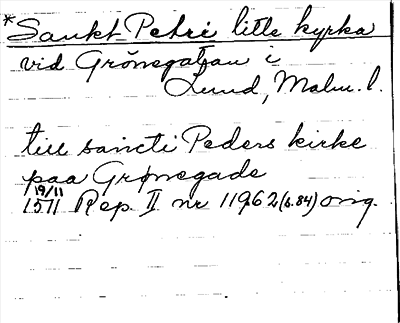 *Sankt Petri lille kyrka
vid Grönegatan i
Lund, Malm. l.
till sancti Peders kirke
paa Grønegade
19/11
1571 Rep. II nr 11962 (s. 84) orig.